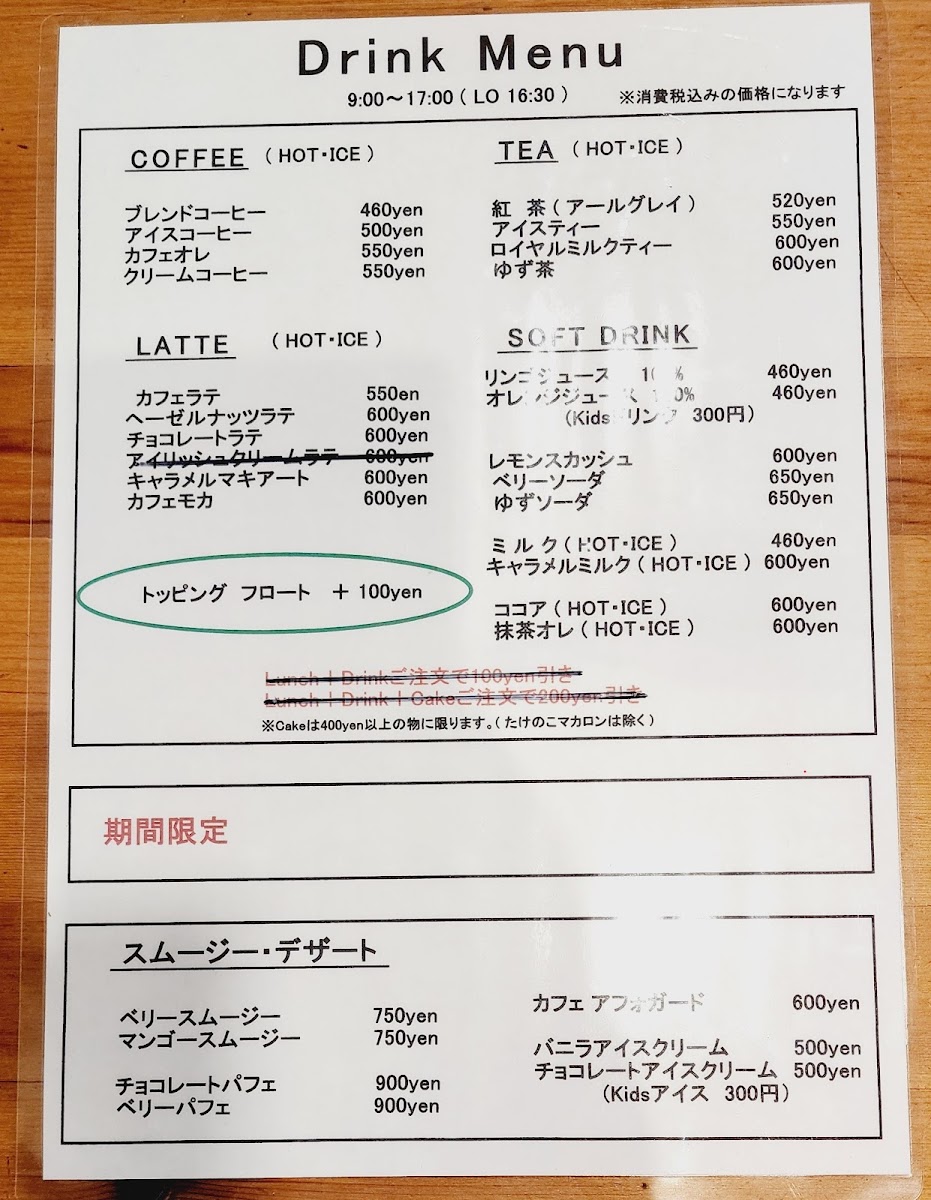 Drink Menu
9:00～17:00 ( LO 16:30 )
※消費税込みの価格になります
COFFEE ( HOT・ICE )
ブレンドコーヒー 460yen
アイスコーヒー 500yen
カフェオレ 550yen
クリームコーヒー 550yen
LATTE ( HOT・ICE )
カフェラテ 550en
ヘーゼルナッツラテ 600yen
チョコレートラテ 600yen
アイリッシュクリームラテ 600yen
キャラメルマキアート 600yen
カフェモカ 600yen
トッピング フロート ＋ 100yen
TEA ( HOT・ICE )
紅 茶 ( アールグレイ ) 520yen
アイスティー 550yen
ロイヤルミルクティー 600yen
ゆず茶 600yen
SOFT DRINK
リンゴジュース 100% 460yen
オレンジジュース 100% 460yen
(Kidsドリンク 300円)
レモンスカッシュ 600yen
ベリーソーダ 650yen
ゆずソーダ 650yen
ミ ル ク ( HOT・ICE ) 460yen
キャラメルミルク ( HOT・ICE ) 600yen
ココア ( HOT・ICE ) 600yen
抹茶オレ ( HOT・ICE ) 600yen
Lunch＋Drinkご注文で100yen引き
Lunch＋Drink＋Cakeご注文で200yen引き
※Cakeは400yen以上の物に限ります。( たけのこマカロンは除く )
期間限定
スムージー・デザート
ベリースムージー 750yen
マンゴースムージー 750yen
チョコレートパフェ 900yen
ベリーパフェ 900yen
カフェ アフォガード 600yen
バニラアイスクリーム 500yen
チョコレートアイスクリーム 500yen
(Kidsアイス 300円)